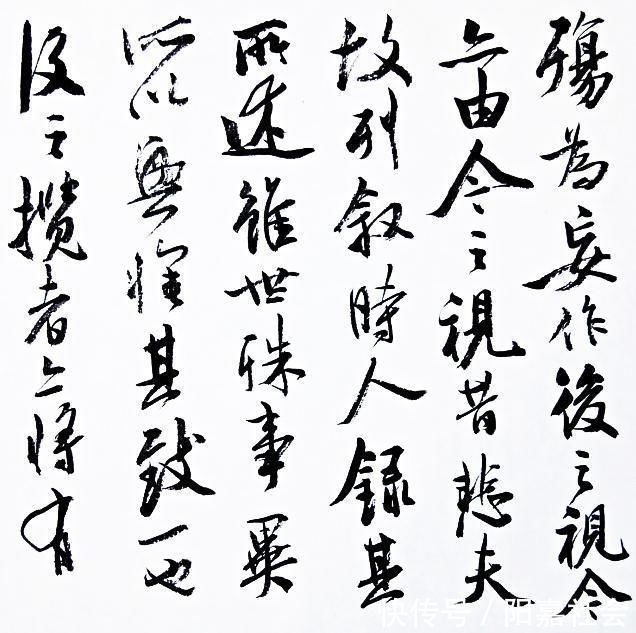 殤為妄作後之視今
亦由今之視昔悲夫
故列叙時人錄其
所述雖世殊事異
所以興懷其致一也
後之攬者亦將有
快传号 / 阳嘉社会